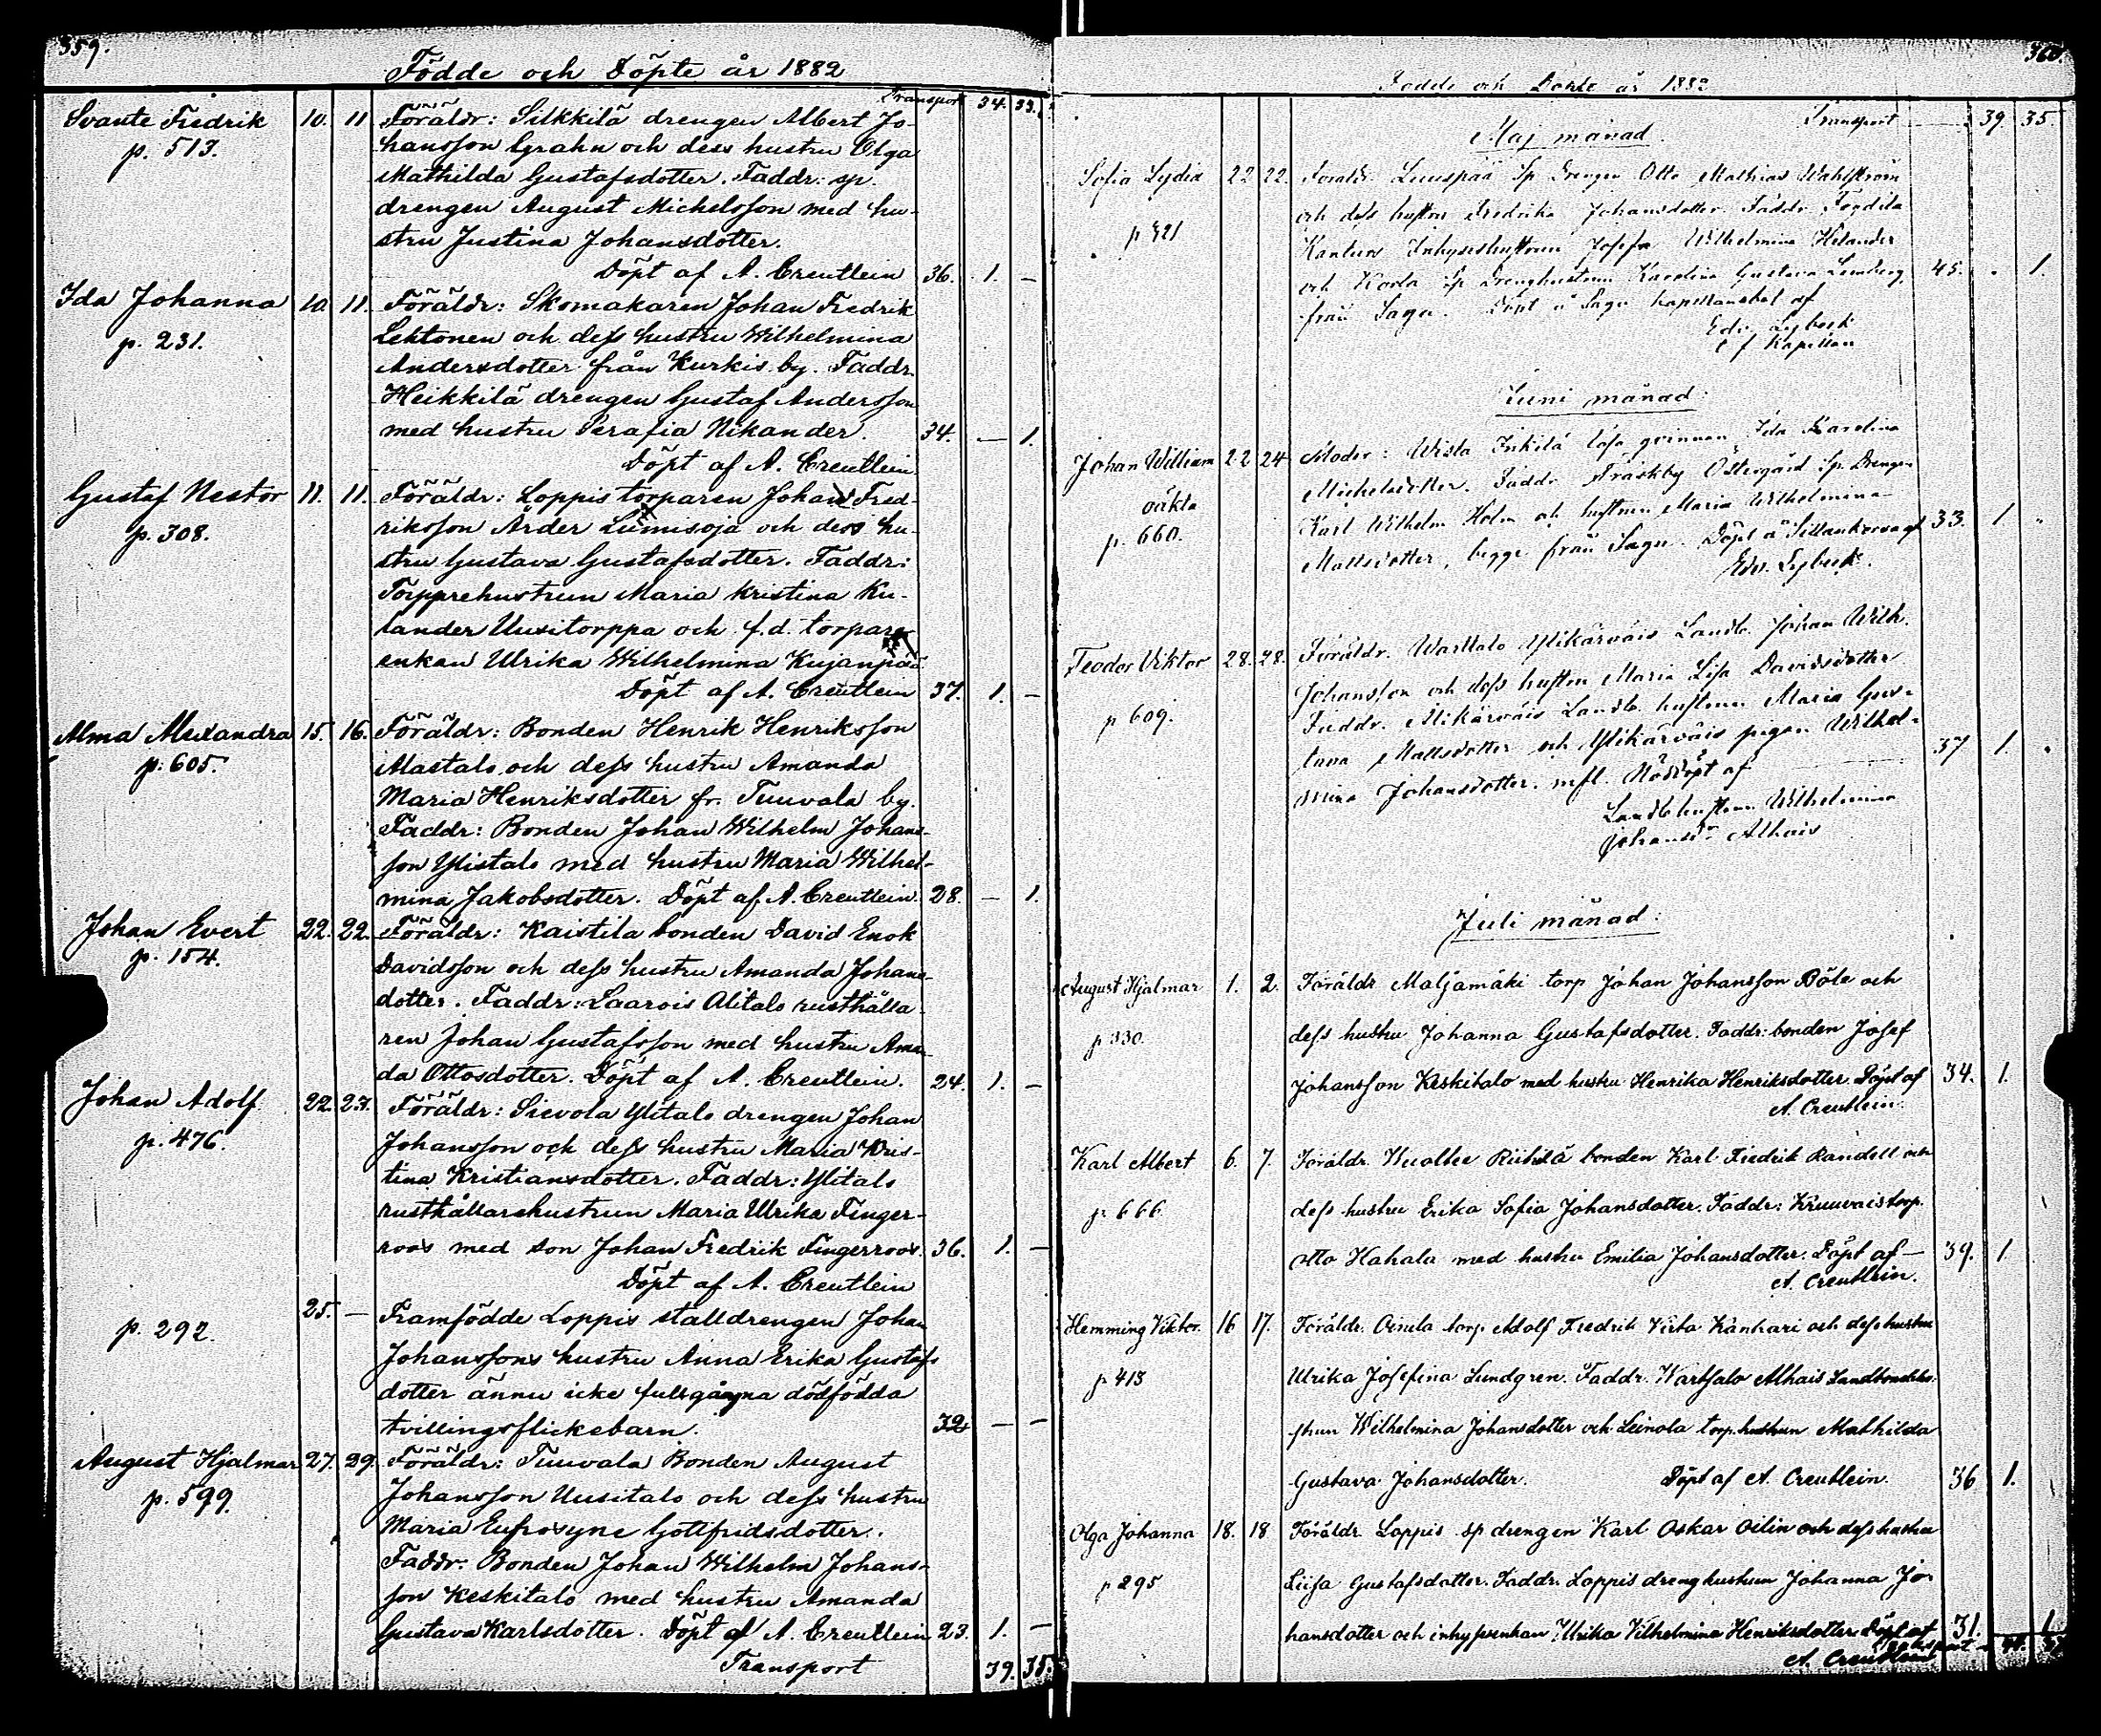 359.
Födde och Döpte år 1882
Transport 34. 33.
Svante Fredrik 10. 11. Föräldr: Silkkilä drengen Albert Jo-
p. 513. hansson Grahn och dess hustru Olga
Mathilda Gustafsdotter. Faddr: sp.
drengen August Michelsson med hu-
stru Justina Johansdotter.
Döpt af A. Creutlein 36. 1. —
Ida Johanna 10. 11. Föräldr: Skomakaren Johan Fredrik
p. 231. Lehtonen och dess hustru Wilhelmina
Andersdotter från Kurkis by. Faddr.
Heikkilä drengen Gustaf Andersson
med hustru Serafia Nikander. 34. — 1.
Döpt af A. Creutlein.
Gustaf Nestor 11. 11. Föräldr: Loppis torparen Johan Fred-
p. 308. riksson Ärder Lunnisoja och dess hu-
stru Gustava Gustafsdotter. Faddr:
Torparehustrun Maria Kristina Ku-
lander Uusitorppa och f.d. torpare
enkan Ulrika Wilhelmina Kujanpää
Döpt af A. Creutlein 37. 1. —
Alma Alexandra 15. 16. Föräldr: Bonden Henrik Henriksson
p. 605. Mastalo och dess hustru Amanda
Maria Henriksdotter fr. Tuuvala by.
Faddr: Bonden Johan Wilhelm Johans-
son Ylistalo med hustru Maria Wilhel-
mina Jakobsdotter. Döpt af A. Creutlein. 28. — 1.
Johan Evert 22. 22. Föräldr: Kaistila bonden David Enok
p. 154. Davidsson och dess hustru Amanda Johans-
dotter. Faddr: Laarois Alitalo rusthålla-
ren Johan Gustafsson med hustru Aman-
da Ottosdotter. Döpt af A. Creutlein. 24. 1. —
Johan Adolf 22. 23. Föräldr: Sievola Ylitalo drengen Johan
p. 476. Johansson och dess hustru Maria Kris-
tina Kristiansdotter. Faddr: Ylitalo
rusthållarehustrun Maria Ulrika Finger-
roos med son Johan Fredrik Fingerroos. 36. 1. —
Döpt af A. Creutlein
25. — Framfödde Loppis stalldrengen Johan
p. 292. Johanssons hustru Anna Erika Gustafs
dotter ännu icke fullgångna dödfödda
tvillingsflickebarn. 32 — —
August Hjalmar 27. 29. Föräldr: Tuuvala Bonden August
p. 599. Johansson Uusitalo och dess hustru
Maria Eufrosyne Gottfridsdotter.
Faddr: Bonden Johan Wilhelm Johans-
son Keskitalo med hustru Amanda
Gustava Karlsdotter. Döpt af A. Creutlein 23. 1. —
Transport 39. 35.
360.
Födde och Döpte år 1882
Transport 39. 35.
Maj månad.
Sofia Lydia 22 22. Föräldr. Luuspää Sp Drengen Otto Mathias Wahlström
p 421 och dess hustru Fredrika Johansdotter. Faddr.
Inhyseshustrun Josefa Wilhelmina Helander
och Karla Sp Drenghustrun Karolina Gustava Lemberg 45. . 1.
från Sagu. Döpt å Sagu kapellansbol af
Edv. Lybeck
Kapellan
Juni månad.
Johan William 22 24 Moder: Wista Inkilä lösa qvinnan Ida Karolina
oäkta Michelsdotter. Faddr Träskby Östergård Sp. Drengen
p. 660. Karl Wilhelm Holm och hustrun Maria Wilhelmina 33. 1
Mattsdotter, begge från Sagu. Döpt å af
Edv. Lybeck.
Teodor Viktor 28. 28. Föräldr. Warttalo Ylikärväis Landb. Johan Wilh.
p 609. Johansson och dess hustru Maria Lisa Davidsdotter
Faddr. Alikärväis Landb. hustrun Maria Gus-
tava Mattsdotter och Ylikärväis pigan Wilhel- 37 1.
mina Johansdotter. mfl. Nöddöpt af
Landb hustrun Wilhelmina
Johansdr. Alhais
Juli månad:
August Hjalmar 1. 2. Föräldr Maljamäki torp Johan Johansson Böle och
p 330. dess hustru Johanna Gustafsdotter. Faddr: bonden Josef
Johansson Keskitalo med hustru Henrika Henriksdotter. Döpt af 34. 1.
A. Creutlein.
Karl Albert 6. 7. Föräldr. Wuolle bonden Karl Fredrik Randell och
p. 666 dess hustru Erika Sofia Johansdotter. Faddr: Kruuvais torp.
Otto Hahala med hustru Emilia Johansdotter. Döpt af — 39. 1.
A. Creutlein.
Hemming Viktor. 16 17. Föräldr. torp Adolf Fredrik Virta Kankari och dess hustru
p 413 Ulrika Josefina Lundgren. Faddr. Wartsalo Alhais Landbondehu-
strun Wilhelmina Johansdotter och Leinola torp. hustrun Mathilda
Gustava Johansdotter. Döpt af A. Creutlein. 36 1.
Olga Johanna 18. 18 Föräldr. Loppis sp drengen Karl Oskar Oilin och dess hustru
p 295 Liisa Gustafsdotter. Faddr. Loppis drenghustrun Johanna Jo-
hansdotter och inhysesenkan Ulrika Vilhelmina Henriksdotter Döpt af 31. 1.
A. Creutlein Transport